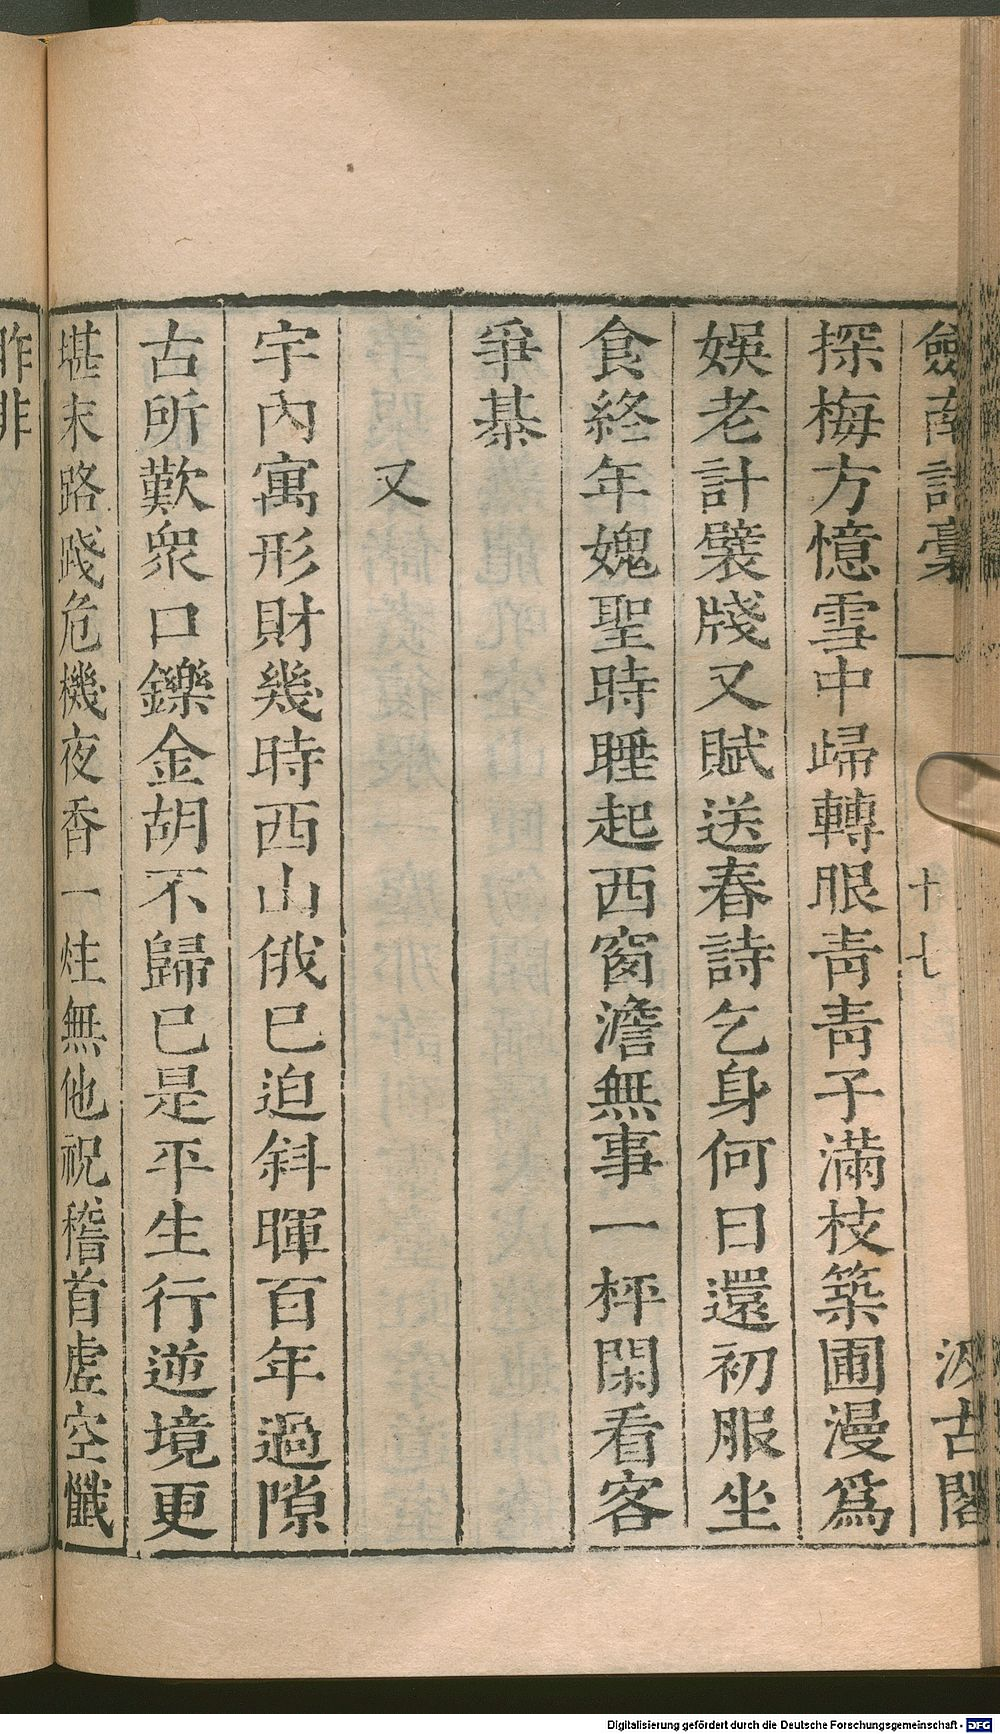 劍南詩稾 十七 汲古閣
探梅方憶雪中歸轉眼靑靑子滿枝築圃漫爲
娛老計襞牋又賦送春詩乞身何日還初服坐
食終年媿聖時睡起西窗澹無事一枰閑看客
爭棊
又
宇內寓形財幾時西山俄已迫斜暉百年過隙
古所歎眾口鑠金胡不歸已是平生行逆境更
堪末路踐危機夜香一炷無他祝稽首虛空懺
昨非
Digitalisierung gefördert durch die Deutsche Forschungsgemeinschaft - DFG